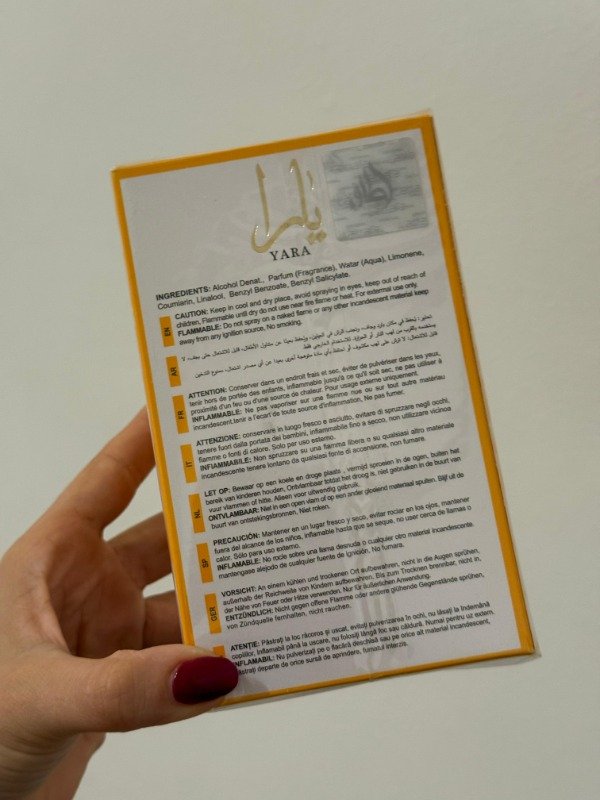 يارا
YARA
INGREDIENTS: Alcohol Denat., Parfum (Fragrance), Watar (Aqua), Limonene,
Coumiarin, Linalool, Benzyl Benzoate, Benzyl Salicylate.
EN
CAUTION: Keep in cool and dry place, avoid spraying in eyes, keep out of reach of
children, Flammable until dry do not use near fire flame or heat. For extermal use only.
FLAMMABLE: Do not spray on a naked flame or any other incandescent material keep
away from any ignition source, No smoking.
AR
تحذير: يُحفظ في مكان بارد وجاف، وتجنب الرش في العينين، ويُحفظ بعيدًا عن متناول الأطفال، قابل للاشتعال حتى يجف، لا
يستخدم بالقرب من لهب النار أو الحرارة. للاستخدام الخارجي فقط
قابل للاشتعال: لا ترش على لهب مكشوف أو بعيدًا عن أي مصدر اشتعال، ممنوع التدخين
FR
ATTENTION: Conserver dans un endroit frais et sec, éviter de pulvériser dans les yeux,
tenir hors de portée des enfants, inflammable jusqu'à ce qu'il soit sec, ne pas utiliser à
proximité d'un feu ou d'une source de chaleur. Pour usage externe uniquement.
INFLAMMABLE: Ne pas vaporiser sur une flamme nue ou sur tout autre matériau
incandescent,tenir a l'écart de toute source d'inflammation, Ne pas fumer.
IT
ATTENZIONE: conservare in luogo fresco e asciutto, evitare di spruzzare negli occhi,
tenere fuori dalla portata dei bambini, infiammabile fino a secco, non utilizzare vicino a
fiamme o fonti di calore. Solo per uso esterno.
INFIAMMABILE: Non spruzzare su una fiamma libera o su qualsiasi altro materiale
incandescente tenere lontano da qualsiasi fonte di accensione, non fumare.
NL
LET OP: Bewaar op een koele en droge plaats , vermijd sproeien in de ogen, buiten het
bereik van kinderen houden, Ontvlambaar totdat het droog is, niet gebruiken in de buurt van
vuur vlammen of hitte. Alleen voor uitwendig gebruik.
ONTVLAMBAAR: Niet in een open vlam of op een ander gloeiend materiaal spuiten, Blijf uit de
buurt van ontstekingsbronnen, Niet roken.
SP
PRECAUCIÓN: Mantener en un lugar fresco y seco, evitar rociar en los ojos, mantener
fuera del alcance de los niños, inflamable hasta que se seque, no user cerca de llamas o
calor. Sólo para uso externo.
INFLAMABLE: No rocíe sobre una llama desnuda o cualquier otro material incandescente,
mantengase alejodo de cualquier fuente de ignición. No fumara.
GER
VORSICHT: An einem kühlen und trockenen Ort aufbewahren, nicht in die Augen sprühen,
außerhalb der Reichweite von Kindern aufbewahren, Bis zum Trocknen brennbar, nicht in,
der Nähe von Feuer oder Hitze verwenden. Nur für äußerlichen Anwendung.
ENTZÜNDLICH: Nicht gegen offene Flamme oder andere glühende Gegenstände sprühen,
von Zündquelle fernhalten, nicht rauchen.
ATENȚIE: Păstrați la loc răcoros și uscat, evitați pulverizarea în ochi, nu lăsați la îndemână
copiilor, Inflamabil până la uscare, nu folosiți lângă foc sau căldură. Numai pentru uz extern.
INFLAMABIL: Nu pulverizați pe o flacără deschisă sau pe orice alt material incandescent,
Păstrați departe de orice sursă de aprindere, fumatul interzis.